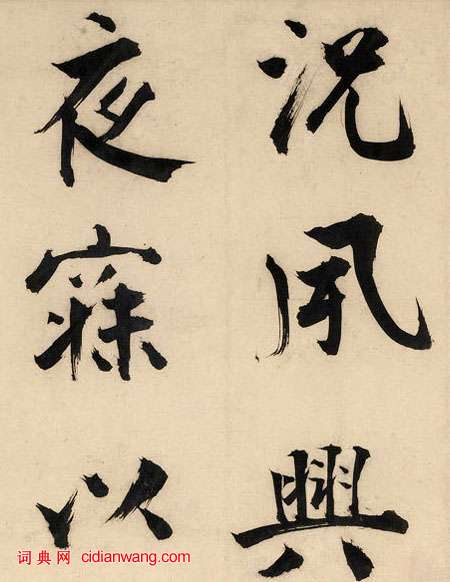 况夙興
夜寐以
词典网 cidianwang.com